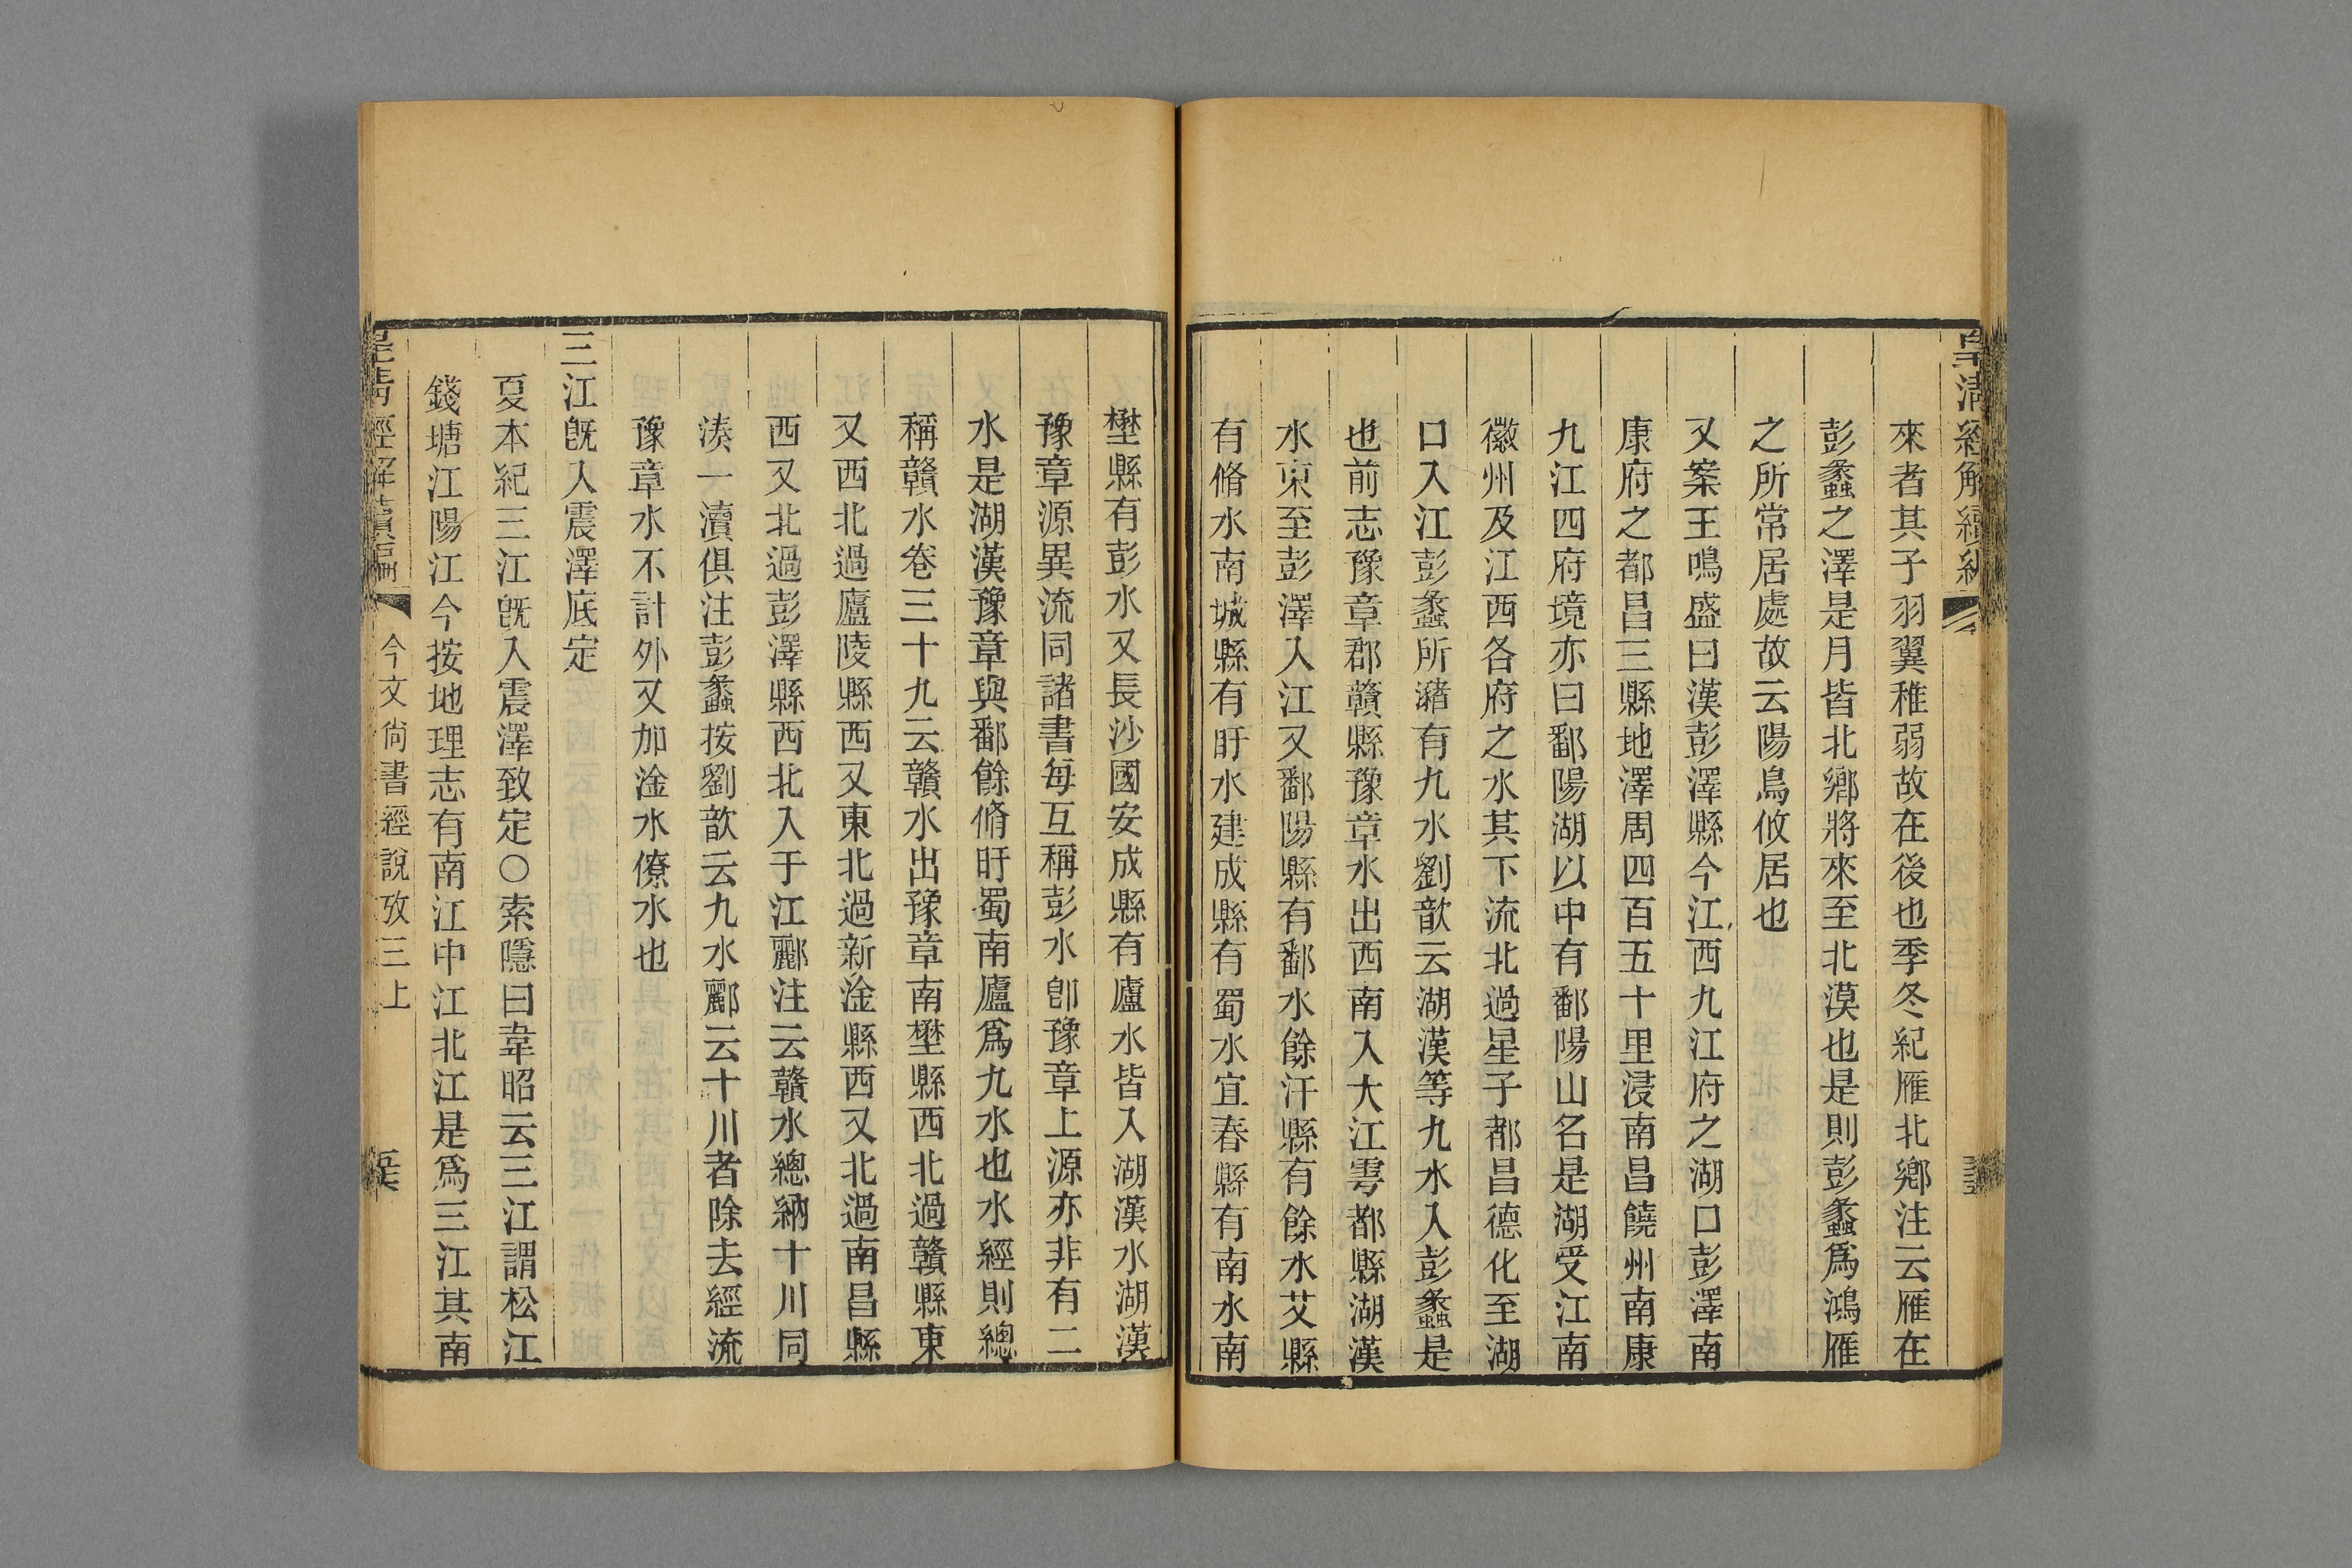 皇清經解續編
來者其子羽翼稚弱故在後也季冬紀雁北鄉注云雁在
彭蠡之澤是月皆北鄉將來至北漠也是則彭蠡爲鴻雁
之所常居處故云陽鳥攸居也
又案王鳴盛曰漢彭澤縣今江西九江府之湖口彭澤南
康府之都昌三縣地澤周四百五十里浸南昌饒州南康
九江四府境亦曰鄱陽湖以中有鄱陽山名是湖受江南
徽州及江西各府之水其下流北過星子都昌德化至湖
口入江彭蠡所瀦有九水劉歆云湖漢等九水入彭蠡是
也前志豫章郡贛縣豫章水出西南入大江雩都縣湖漢
水東至彭澤入江又鄱陽縣有鄱水餘汗縣有餘水艾縣
有脩水南城縣有盱水建成縣有蜀水宜春縣有南水南
壄縣有彭水又長沙國安成縣有廬水皆入湖漢水湖漢
豫章源異流同諸書每互稱彭水卽豫章上源亦非有二
水是湖漢豫章與鄱餘脩盱蜀南廬爲九水也水經則總
稱贛水卷三十九云贛水出豫章南壄縣西北過贛縣東
又西北過廬陵縣西又東北過新淦縣西又北過南昌縣
西又北過彭澤縣西北入于江酈注云贛水總納十川同
湊一瀆俱注彭蠡按劉歆云九水酈云十川者除去經流
豫章水不計外又加淦水僚水也
三江旣入震澤底定
夏本紀三江旣入震澤致定○索隱曰韋昭云三江謂松江
錢塘江陽江今按地理志有南江中江北江是爲三江其南
皇清經解續編
今文尙書經說攷三上